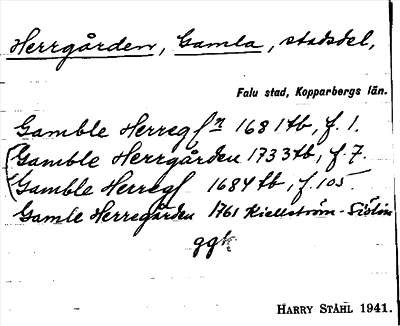 Herrgården, Gamla, stadsdel,
Falu stad, Kopparbergs län.
Gamble Herregln 1681 tb, f. 1.
(Gamble Herrgården 1733 tb, f. 7.
(Gamble Herregl 1684 tb, f. 105.
Gamle Herregården 1761 Kiellström-Siölin
ggk
HARRY STÅHL 1941.